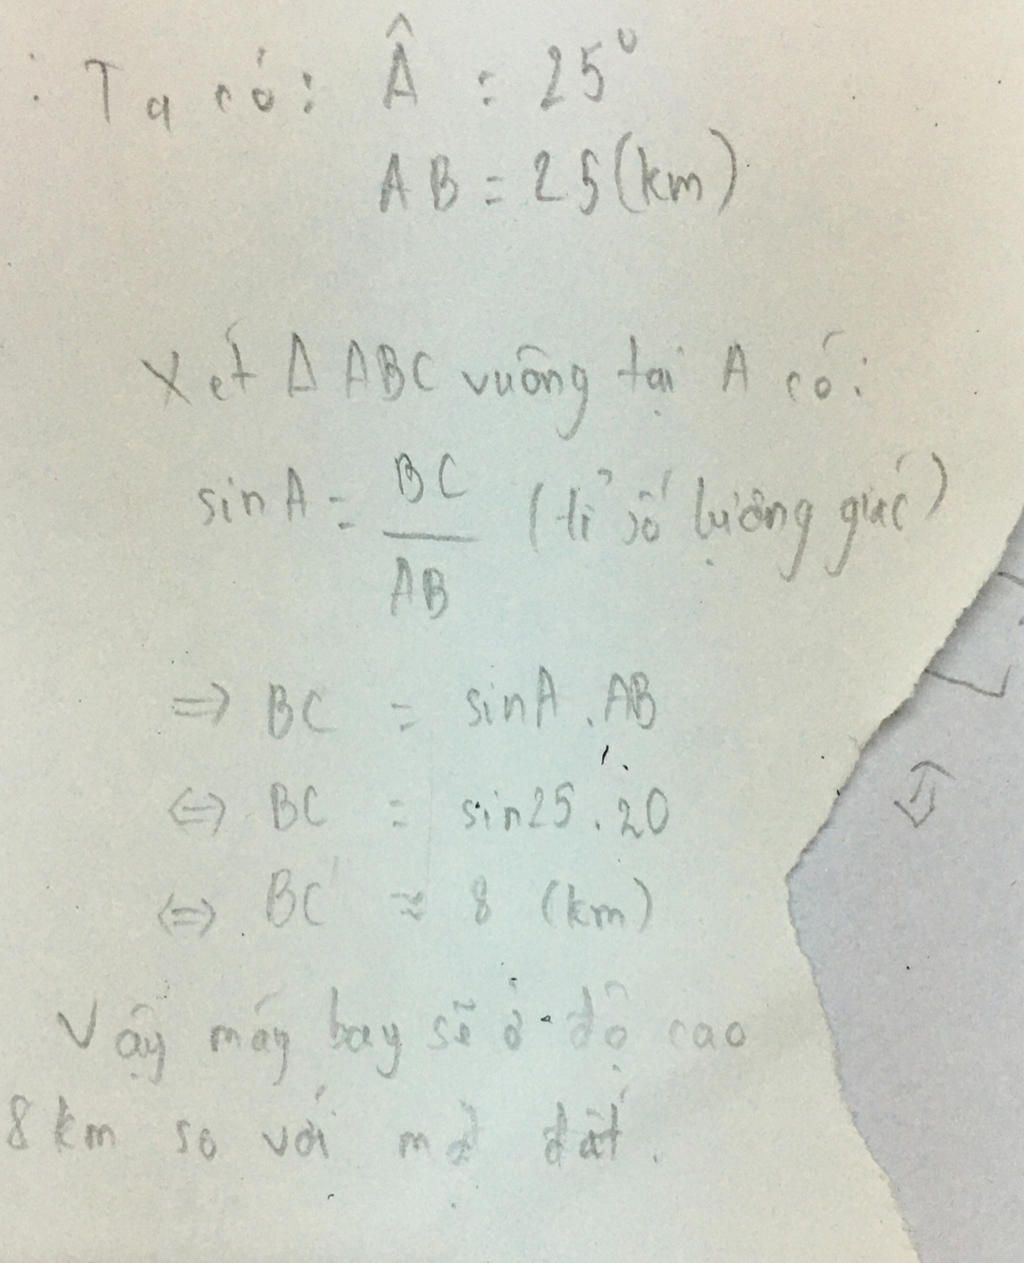 Ta có: Â = 25°
AB = 25 (km)
Xét Δ ABC vuông tại A có:
sin A = BC / AB (tỉ số lượng giác)
=> BC = sinA . AB
<=> BC = sin25 . 20
<=> BC ≈ 8 (km)
Vậy máy bay sẽ ở độ cao
8 km so với đất.